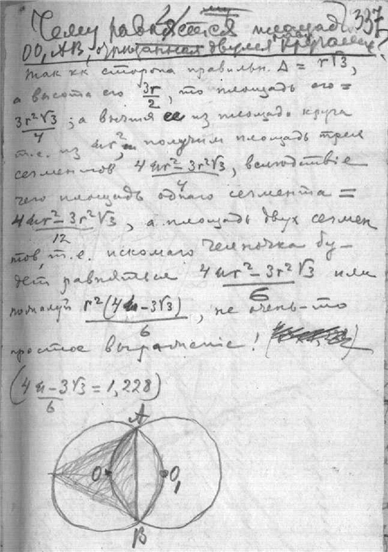 397
Чему равняется площадь
OO, AB, ограниченная двумя
Так кк сторона правильн. Δ = r√3,
а высота его 3r/2, то площадь его =
3r²√3/4; а вычтя ее из площади круга
т.е. из πr², получим площадь трех
сегментов 4πr²-3r²√3/4, вследствіе
чего площадь одного сегмента =
4πr²-3r²√3/12, а площадь двух сегмен
тов, т.е. искомаго челночка бу-
дет равняться 4πr²-3r²√3/6 или
r²(4π-3√3)/6, не очень-то
простое выраженіе!
(4π-3√3/6 = 1,228)
A
O O,
B